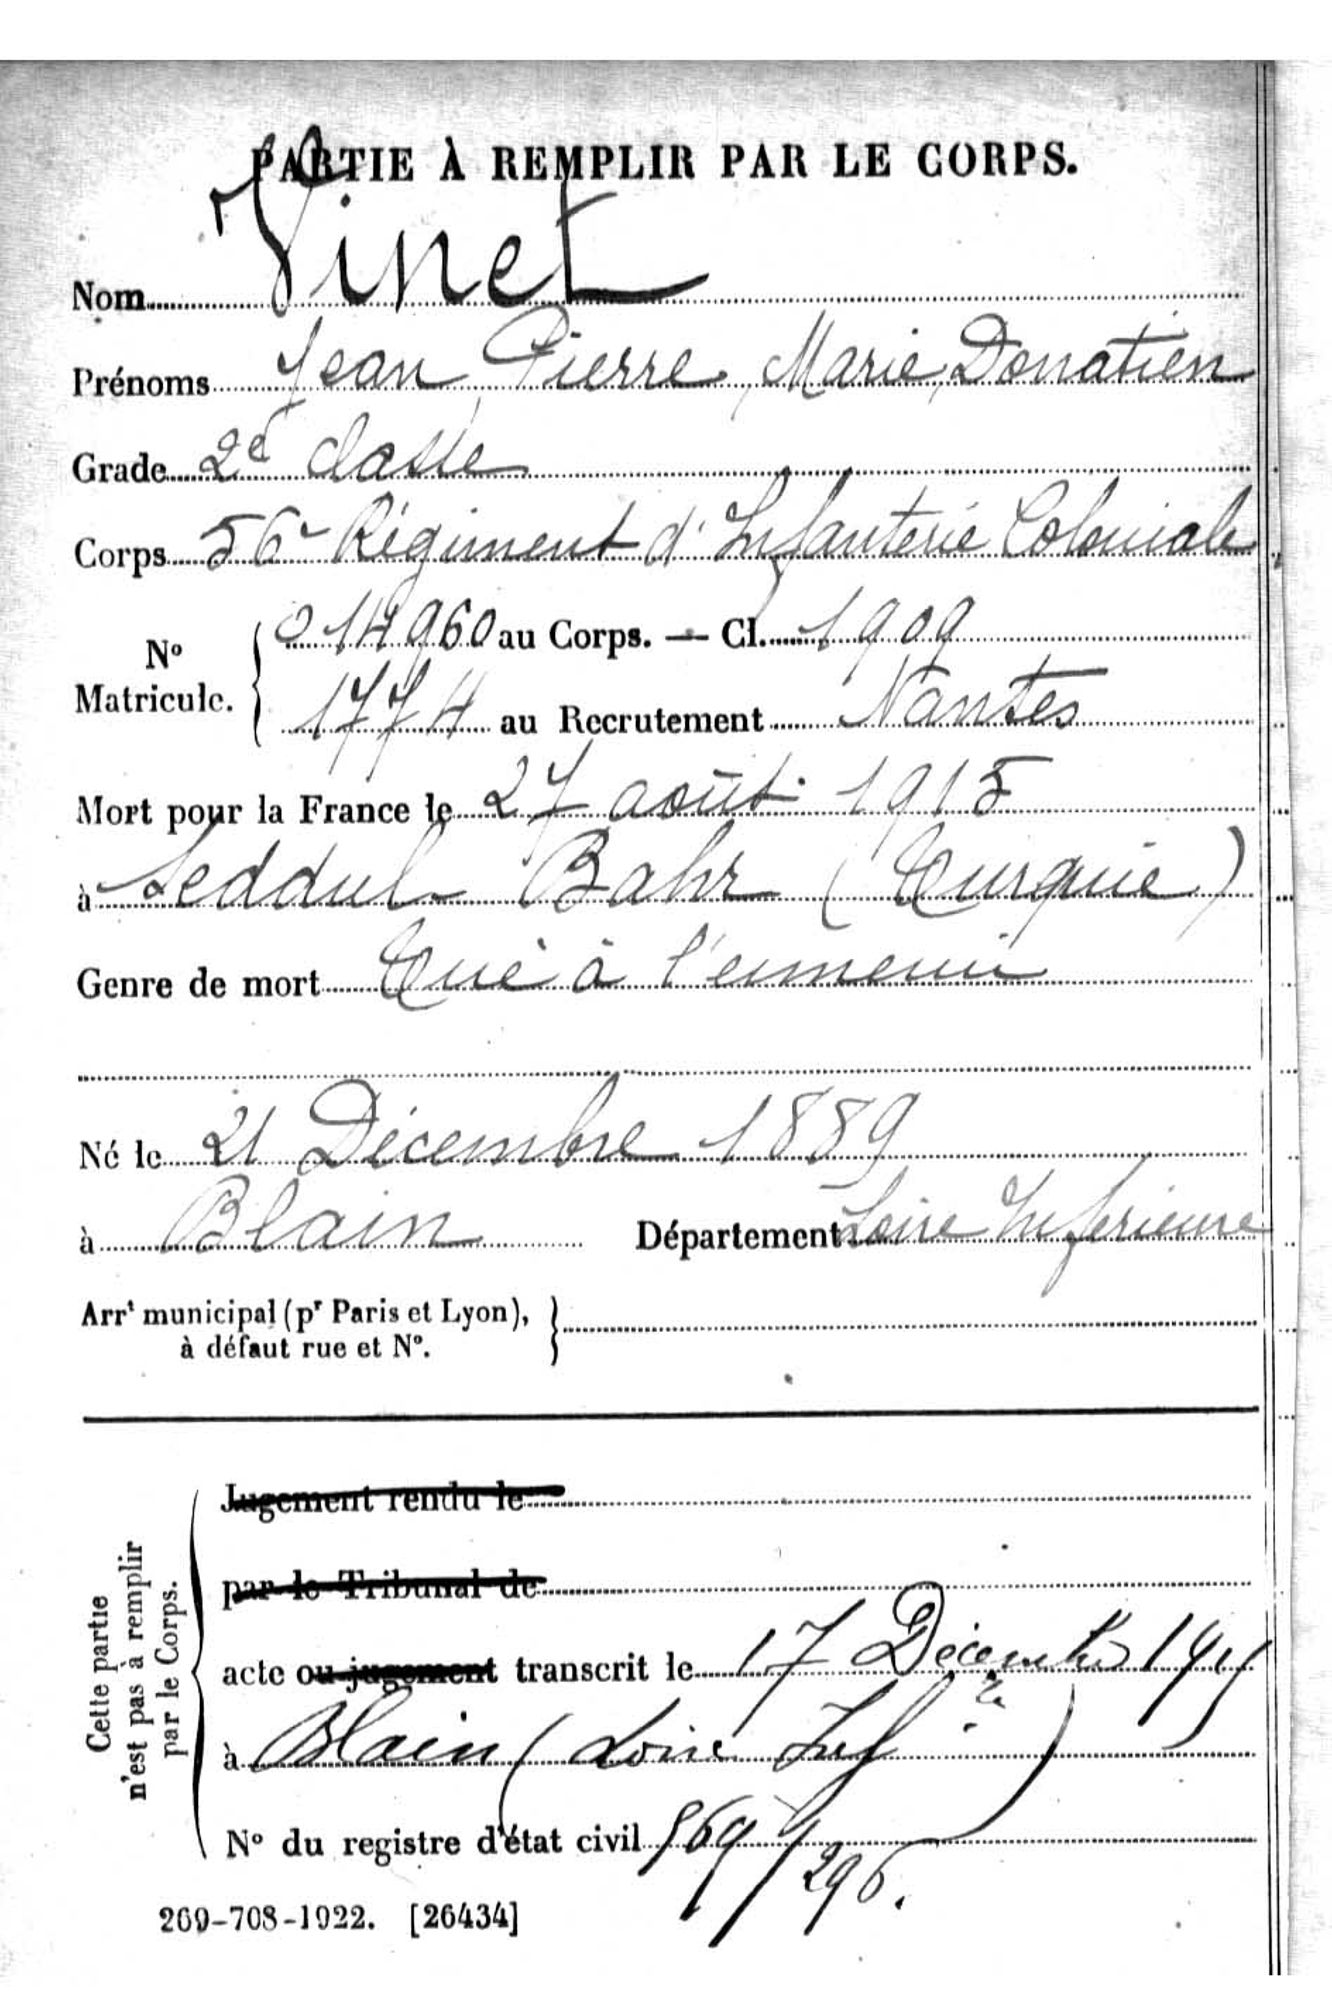 PARTIE À REMPLIR PAR LE CORPS.
Nom Vinet
Prénoms Jean, Pierre, Marie, Donatien
Grade 2e classe
Corps 56e Régiment d'Infanterie Coloniale
No Matricule. { 014960 au Corps. — Cl. 1909
1774 au Recrutement Nantes
Mort pour la France le 27 août 1915
à Seddul Bahr (Turquie)
Genre de mort Tué à l'ennemi
Né le 21 Décembre 1889
à Blain Département Loire Inférieure
Arrt municipal (pr Paris et Lyon), }
à défaut rue et No.
Cette partie
n'est pas à remplir
par le Corps.
Jugement rendu le
par le Tribunal de
acte ou jugement transcrit le 17 Décembre 1915
à Blain (Loire Infre)
No du registre d'état civil 569/296.
269-708-1922. [26434]